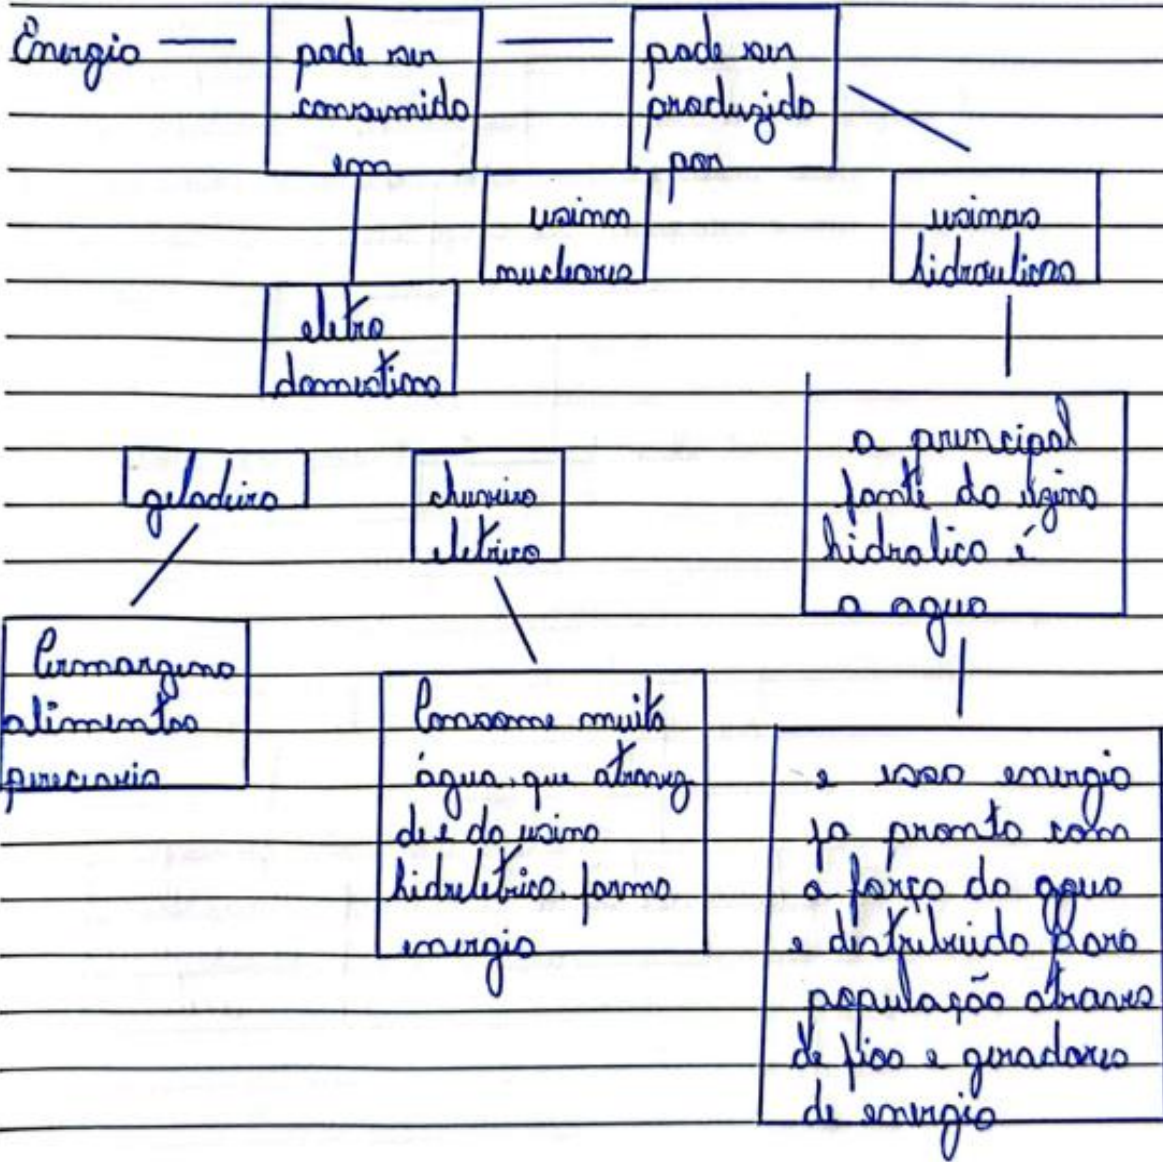 Energia
pode ser
consumido
em
pode ser
produzido
por
usinas
nucleares
usinas
hidraulicas
eletro
domesticos
geladeira
chuveiro
eletrico
a principal
fonte da uzina
hidralica é
a agua
alimentos
pereciveis
Consome muita
água, que atravez
de e da usina
hidreletrica. forma
energia
e essa energia
ja pronta com
a força da agua
e distribuida para
população atraves
de fios e geradores
de energia